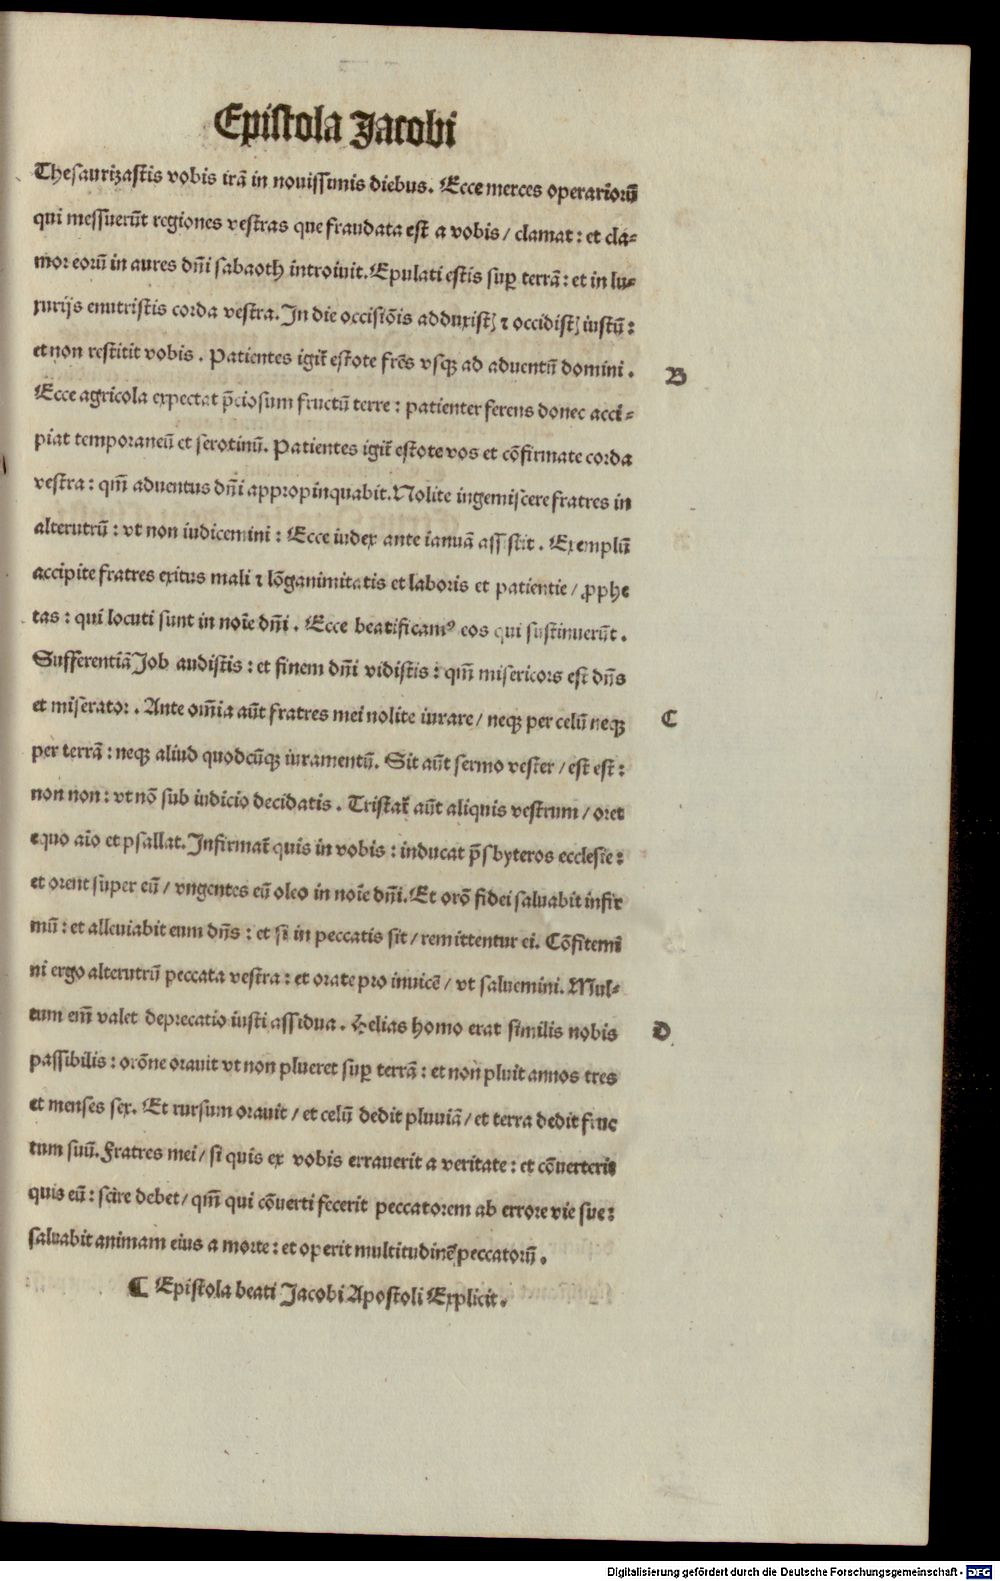 Epistola Jacobi
Thesaurizastis vobis irā in nouissimis diebus. Ecce merces operariorū
qui messuerūt regiones vestras que fraudata est a vobis / clamat : et cla-
mor eorū in aures dn̄i sabaoth introiuit. Epulati estis suꝑ terrā : et in lu-
xurijs enutristis corda vestra. In die occisiōis adduxistꝫ ⁊ occidistꝫ iustū :
et non restitit vobis . Patientes igit̄ estote frēs vsqꝫ ad aduentū domini .
B
Ecce agricola expectat p̄ciosum fructū terre : patienter ferens donec acci-
piat temporaneū et serotinū. Patientes igit̄ estote vos et cōfirmate corda
vestra : qm̄ aduentus dn̄i appropinquabit. Nolite ingemiscere fratres in
alterutrū : vt non iudicemini : Ecce iudex ante ianuā assistit . Exemplū
accipite fratres exitus mali ⁊ lōganimitatis et laboris et patientie / ꝓphe
tas : qui locuti sunt in noīe dn̄i . Ecce beatificamꝰ eos qui sustinuerūt .
Sufferentiā Job audistis : et finem dn̄i vidistis : qm̄ misericors est dn̄s
et miserator . Ante om̄ia aūt fratres mei nolite iurare / neqꝫ per celū neqꝫ
C
per terrā : neqꝫ aliud quodcūqꝫ iuramentū. Sit aūt sermo vester / est est :
non non : vt nō sub iudicio decidatis . Tristat̄ aūt aliquis vestrum / oret
equo aīo et psallat. Infirmat̄ quis in vobis : inducat p̄sbyteros ecclesie :
et orent super eū / vngentes eū oleo in noīe dn̄i. Et orō fidei saluabit infir
mū : et alleuiabit eum dn̄s : et si in peccatis sit / remittentur ei. Cōfitemi
ni ergo alterutrū peccata vestra : et orate pro inuicē / vt saluemini. Mul-
tum em̄ valet deprecatio iusti assidua . Helias homo erat similis nobis
D
passibilis : orōne orauit vt non plueret suꝑ terrā : et non pluit annos tres
et menses sex. Et rursum orauit / et celū dedit pluuiā / et terra dedit fruc
tum suū. Fratres mei / si quis ex vobis errauerit a veritate : et cōuerterit
quis eū : scire debet / qm̄ qui cōuerti fecerit peccatorem ab errore vie sue :
saluabit animam eius a morte : et operit multitudinē peccatorū .
¶ Epistola beati Jacobi Apostoli Explicit .
Digitalisierung gefördert durch die Deutsche Forschungsgemeinschaft - DFG